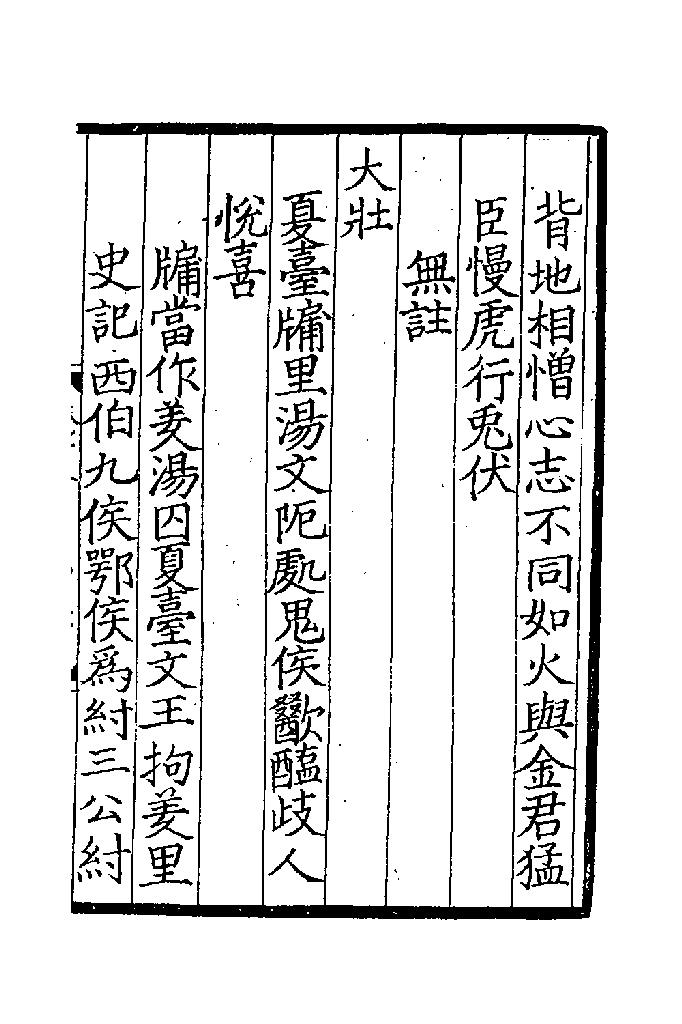 背地相憎心志不同如火與金君猛
臣慢虎行兎伏
無註
大壯
夏臺牖里湯文阨處鬼侯歠醢歧人
悅喜
牖當作羑湯囚夏臺文王拘羑里
史記西伯九侯鄂侯爲紂三公紂